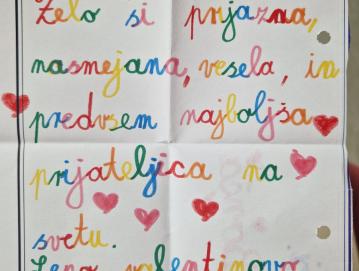 Želo si prijazna,
nasmejana, vesela, in
predvsem najboljša
prijateljica na
svetu.
Lepo valentinovo